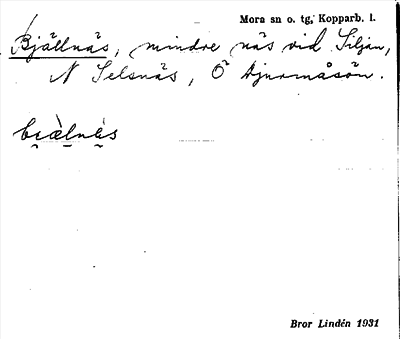 Mora sn o. tg, Kopparb. l.
Bjällnäs, mindre näs vid Siljan,
N Selsnäs, Ö Djurmåsön.
Bror Lindén 1931